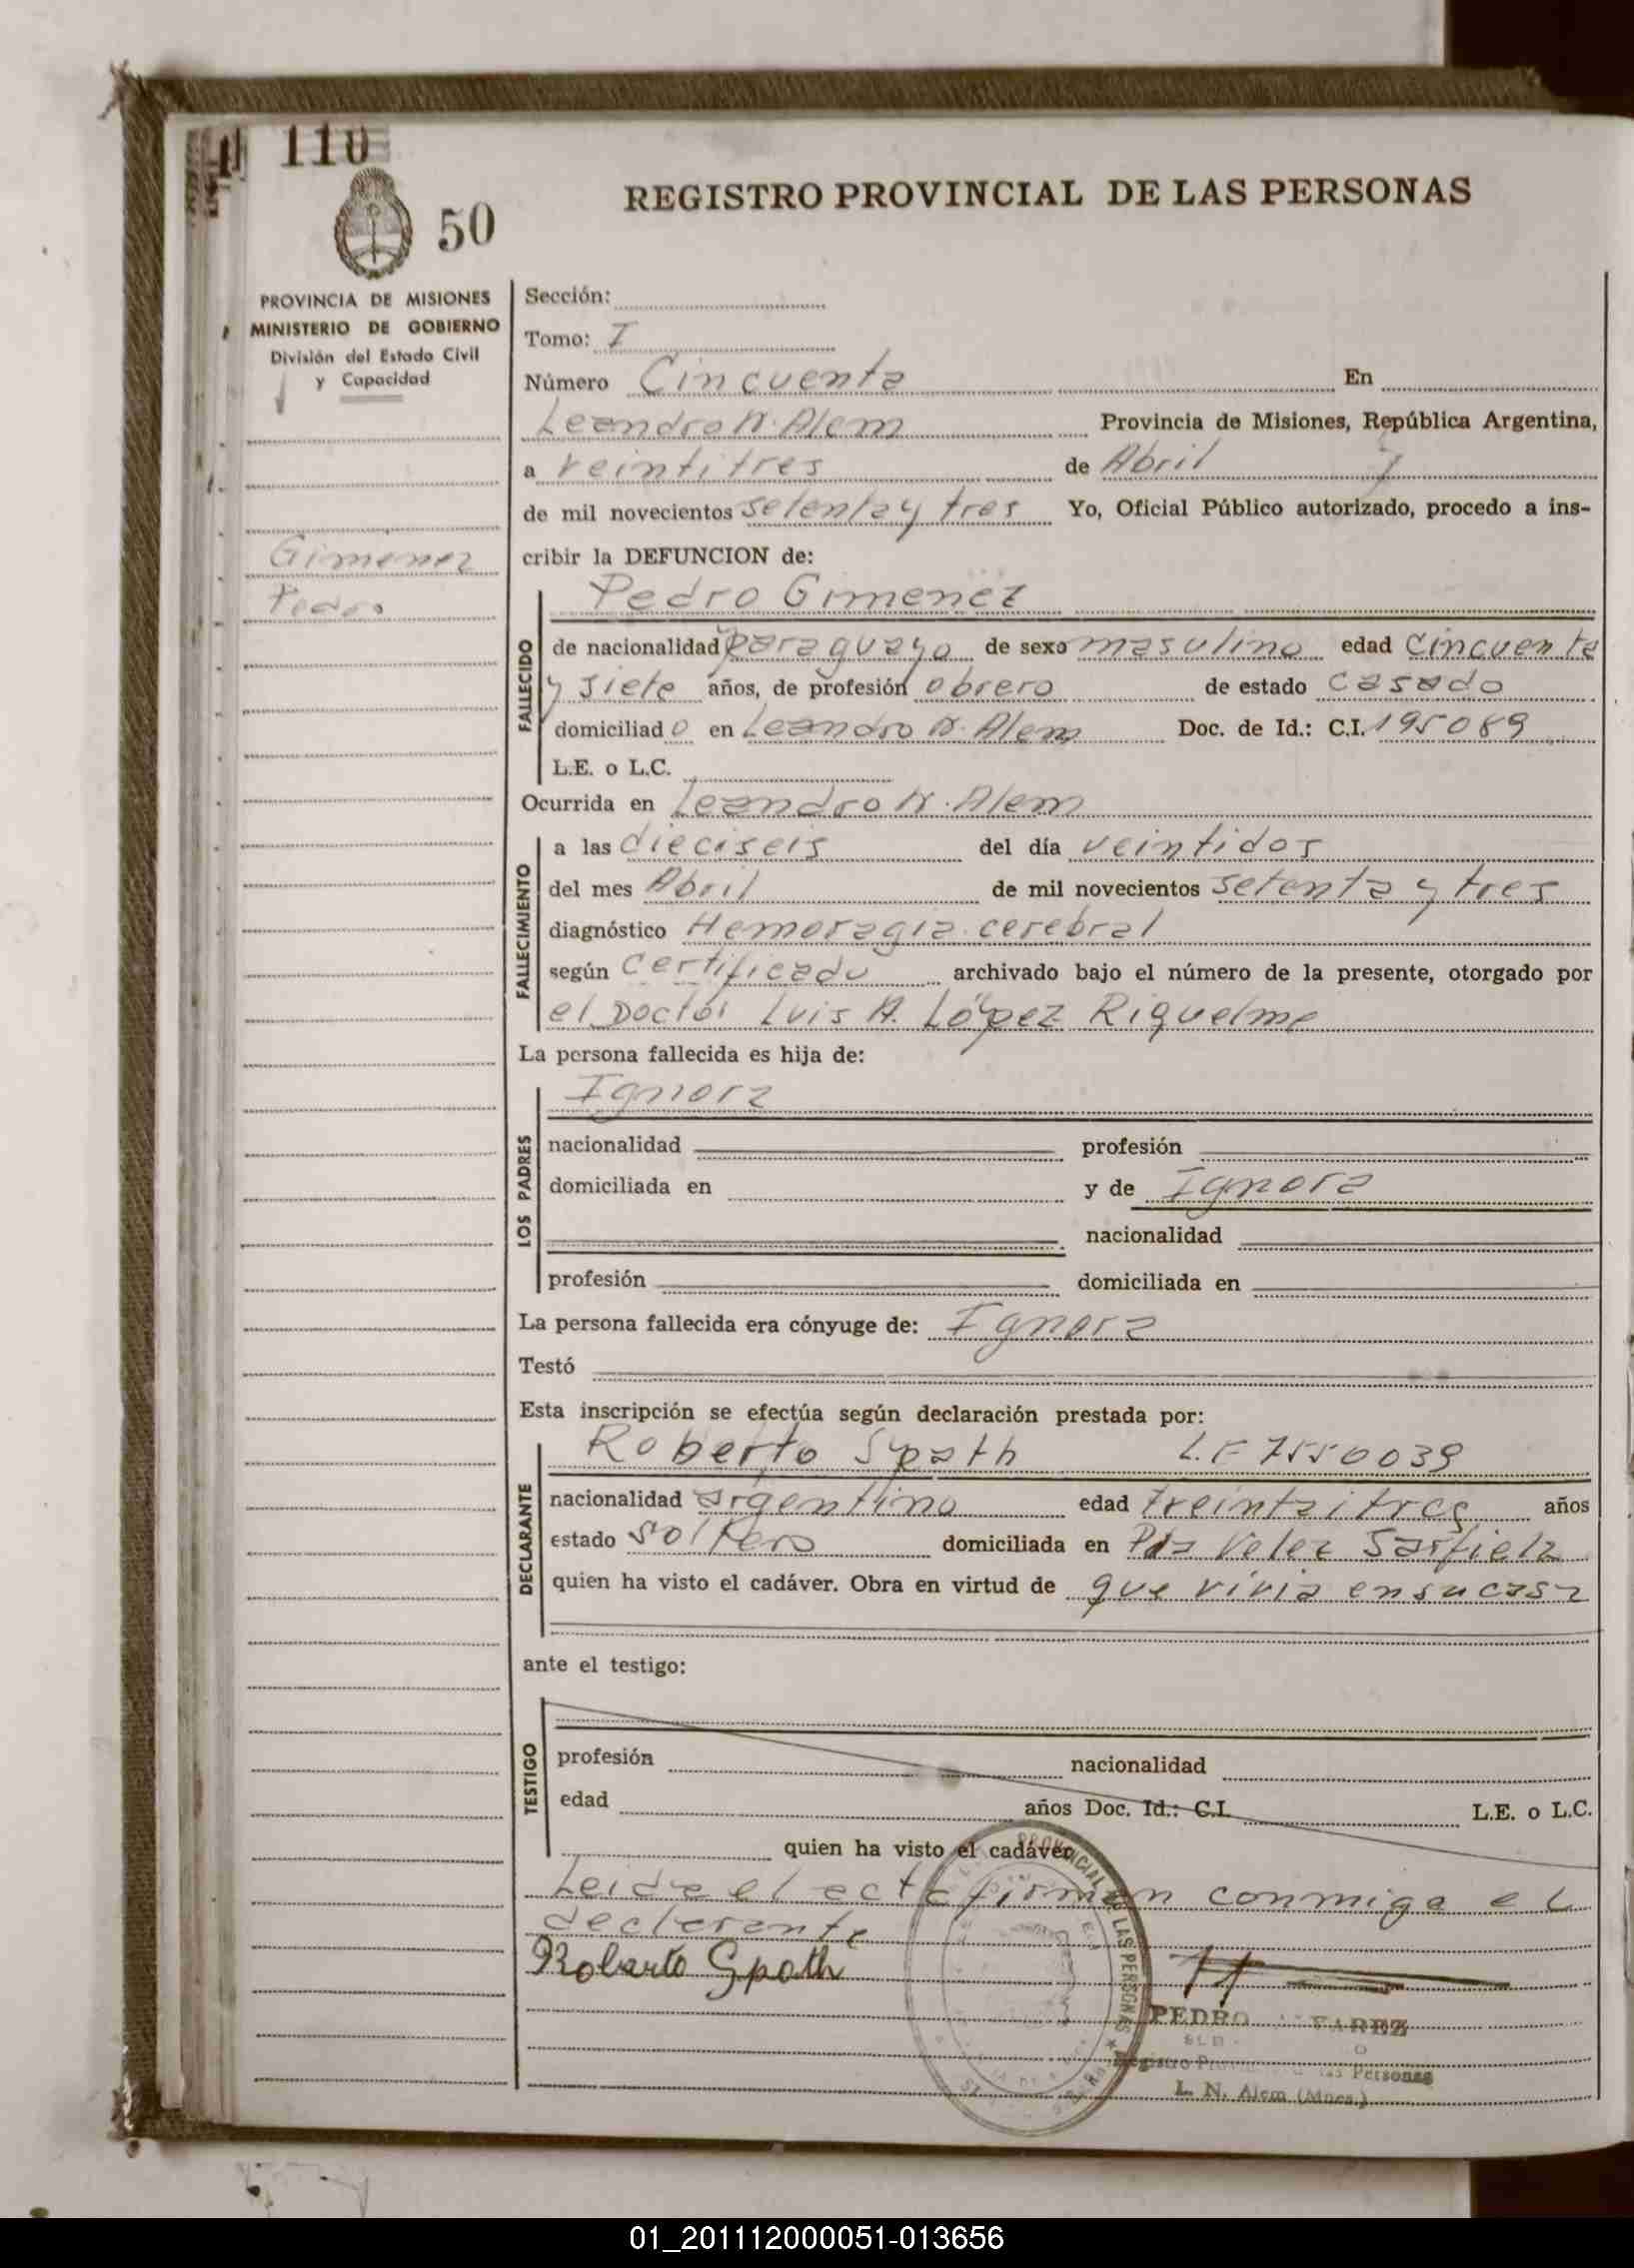 110
50
REGISTRO PROVINCIAL DE LAS PERSONAS
PROVINCIA DE MISIONES
MINISTERIO DE GOBIERNO
División del Estado Civil
y Capacidad
Gimenez
Pedro
Sección:
Tomo: I
Número Cincuenta En
Leandro N. Alem Provincia de Misiones, República Argentina,
a veintitres de Abril
de mil novecientos setenta y tres Yo, Oficial Público autorizado, procedo a ins-
cribir la DEFUNCION de:
Pedro Gimenez
FALLECIDO
de nacionalidad paraguaya de sexo masulino edad cincuenta
y siete años, de profesión obrero de estado casado
domiciliado en Leandro N. Alem Doc. de Id.: C.I. 195089
L.E. o L.C.
Ocurrida en Leandro N. Alem
FALLECIMIENTO
a las dieciseis del día veintidos
del mes Abril de mil novecientos setenta y tres
diagnóstico Hemoragia cerebral
según certificado archivado bajo el número de la presente, otorgado por
el Doctor Luis A. López Riquelme
La persona fallecida es hija de:
LOS PADRES
Ignora
nacionalidad profesión
domiciliada en y de Ignora
nacionalidad
profesión domiciliada en
La persona fallecida era cónyuge de: Ignora
Testó
Esta inscripción se efectúa según declaración prestada por:
DECLARANTE
Roberto Spath L.E 7550039
nacionalidad argentino edad treintaitres años
estado soltero domiciliada en Velez Sarfield
quien ha visto el cadáver. Obra en virtud de que vivia en su casa
ante el testigo:
TESTIGO
profesión nacionalidad
edad años Doc. Id.: C.I. L.E. o L.C.
quien ha visto el cadáver
Leida el acta firman conmigo el
declarante
Roberto Spath
PEDRO
Registro Personas
L. N. Alem (Mnes.)
LAS PERSONAS
01_201112000051-013656